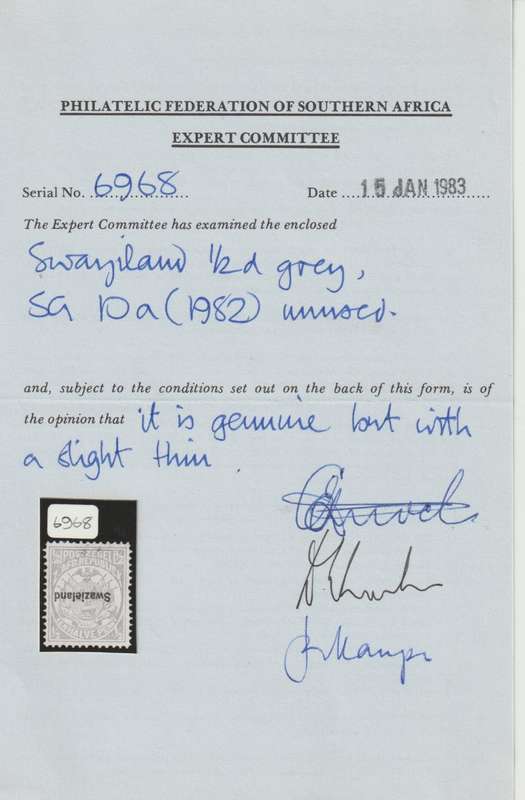 PHILATELIC FEDERATION OF SOUTHERN AFRICA
EXPERT COMMITTEE
Serial No. 6968 Date 15 JAN 1983
The Expert Committee has examined the enclosed
Swaziland ½d grey,
SG 10a (1982) unused.
and, subject to the conditions set out on the back of this form, is of
the opinion that it is genuine but with
a slight thin
6968
POSTZEGEL
Swazieland